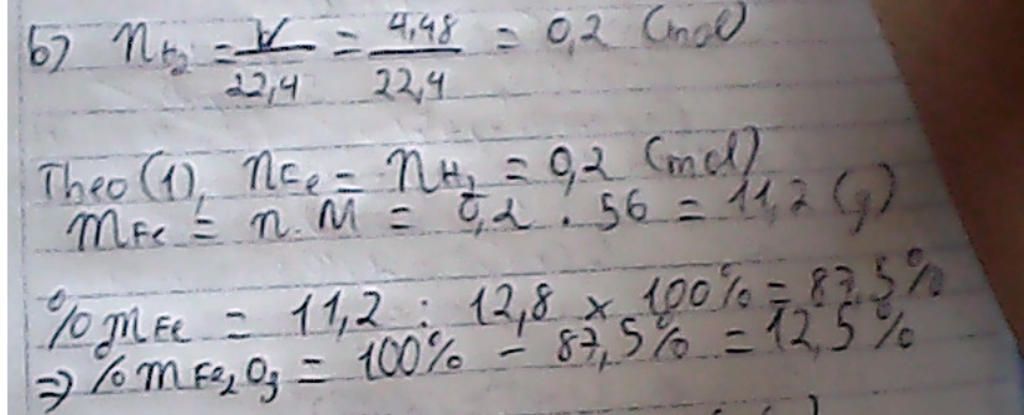 b) nH₂ = V/22,4 = 4,48/22,4 = 0,2 (mol)
Theo (1), nFe = nH₂ = 0,2 (mol)
mFe = n.M = 0,2 . 56 = 11,2 (g)
%mFe = 11,2 : 12,8 x 100% = 87,5%
=> %mFe₂O₃ = 100% - 87,5% = 12,5%